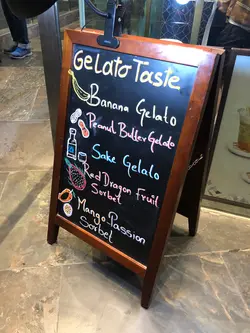 Gelato Taste
Banana Gelato
Peanut Butter Gelato
Sake Gelalo
Red Dragon Fruit
Sorbet
Mango.Passion
Sorbet